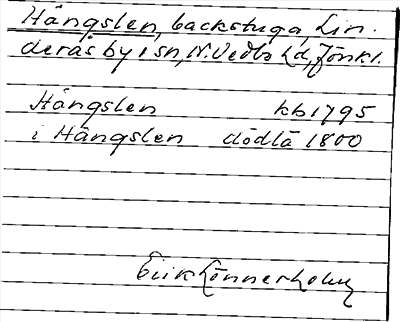 Hängslen, backstuga, Lin.
derås by, sn, N. Vedbo hd, Jönk l.
Hängslen kb 1795
i Hängslen dödlä 1800
Erik Lönnerholm